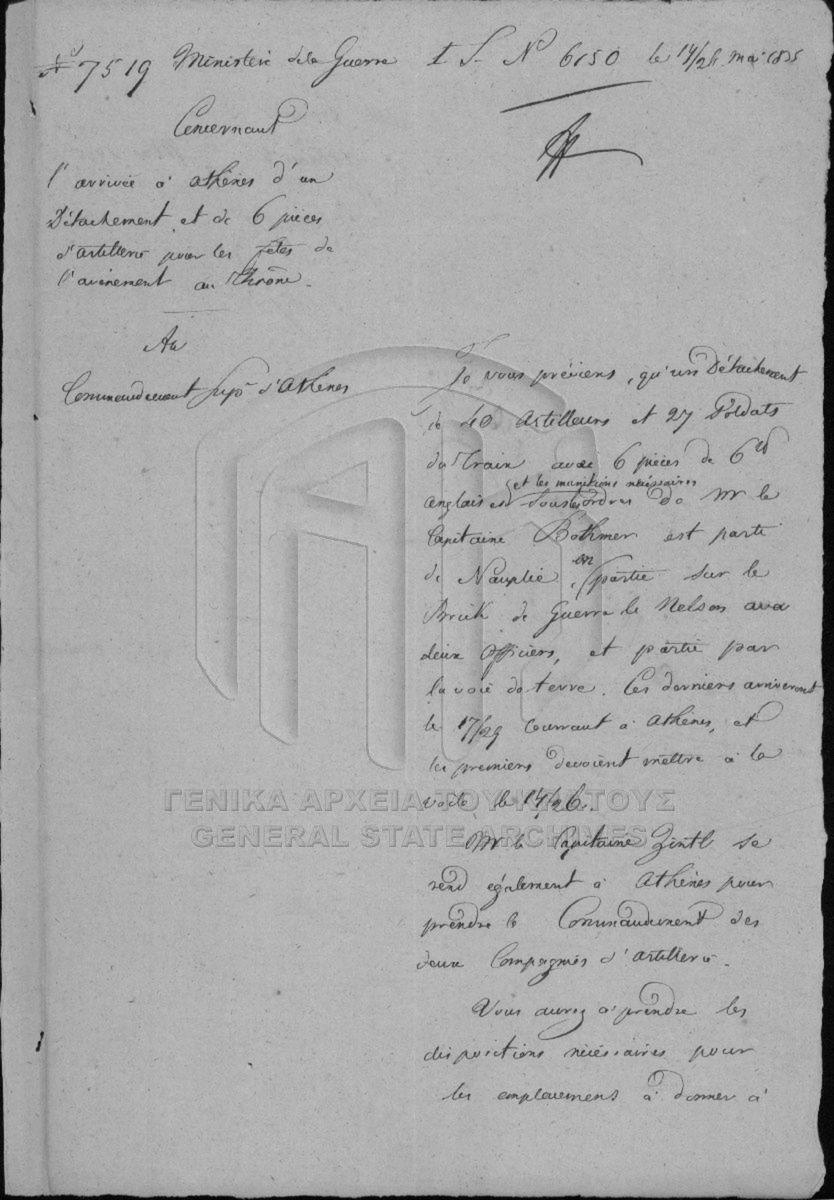 Nº 7519 Ministère de la Guerre t S. N 6150 le 14/26 mai 1835
Concernant
l'arrivée à Athènes d'un
Détachement et de 6 pièces
d'artillerie pour les fêtes de
l'avènement au Thrône.
Au
Commandement Supr d'Athènes
Je vous préviens, qu'un Détachement
de 40 Artilleurs et 27 Soldats
du Train avec 6 pièces de 6 td
et les munitions nécessaires
anglais sous les ordres de Mr le
Capitaine Bothmer est parti
de Nauplie en partie sur le
Brick de Guerre le Nelson avec
deux Officiers, et partie par
la voie de terre. Ces derniers arriveront
le 17/29 Courrant à Athènes, et
les premiers devoient mettre à la
voile le 14/26.
Mr le Capitaine Zintl se
rend également à Athènes pour
prendre le Commandement des
deux Compagnies d'Artillerie.
Vous aurez à prendre les
dispositions nécessaires pour
les emplacemens à donner à
ΓΕΝΙΚΑ ΑΡΧΕΙΑ ΤΟΥ ΚΡΑΤΟΥΣ
GENERAL STATE ARCHIVES